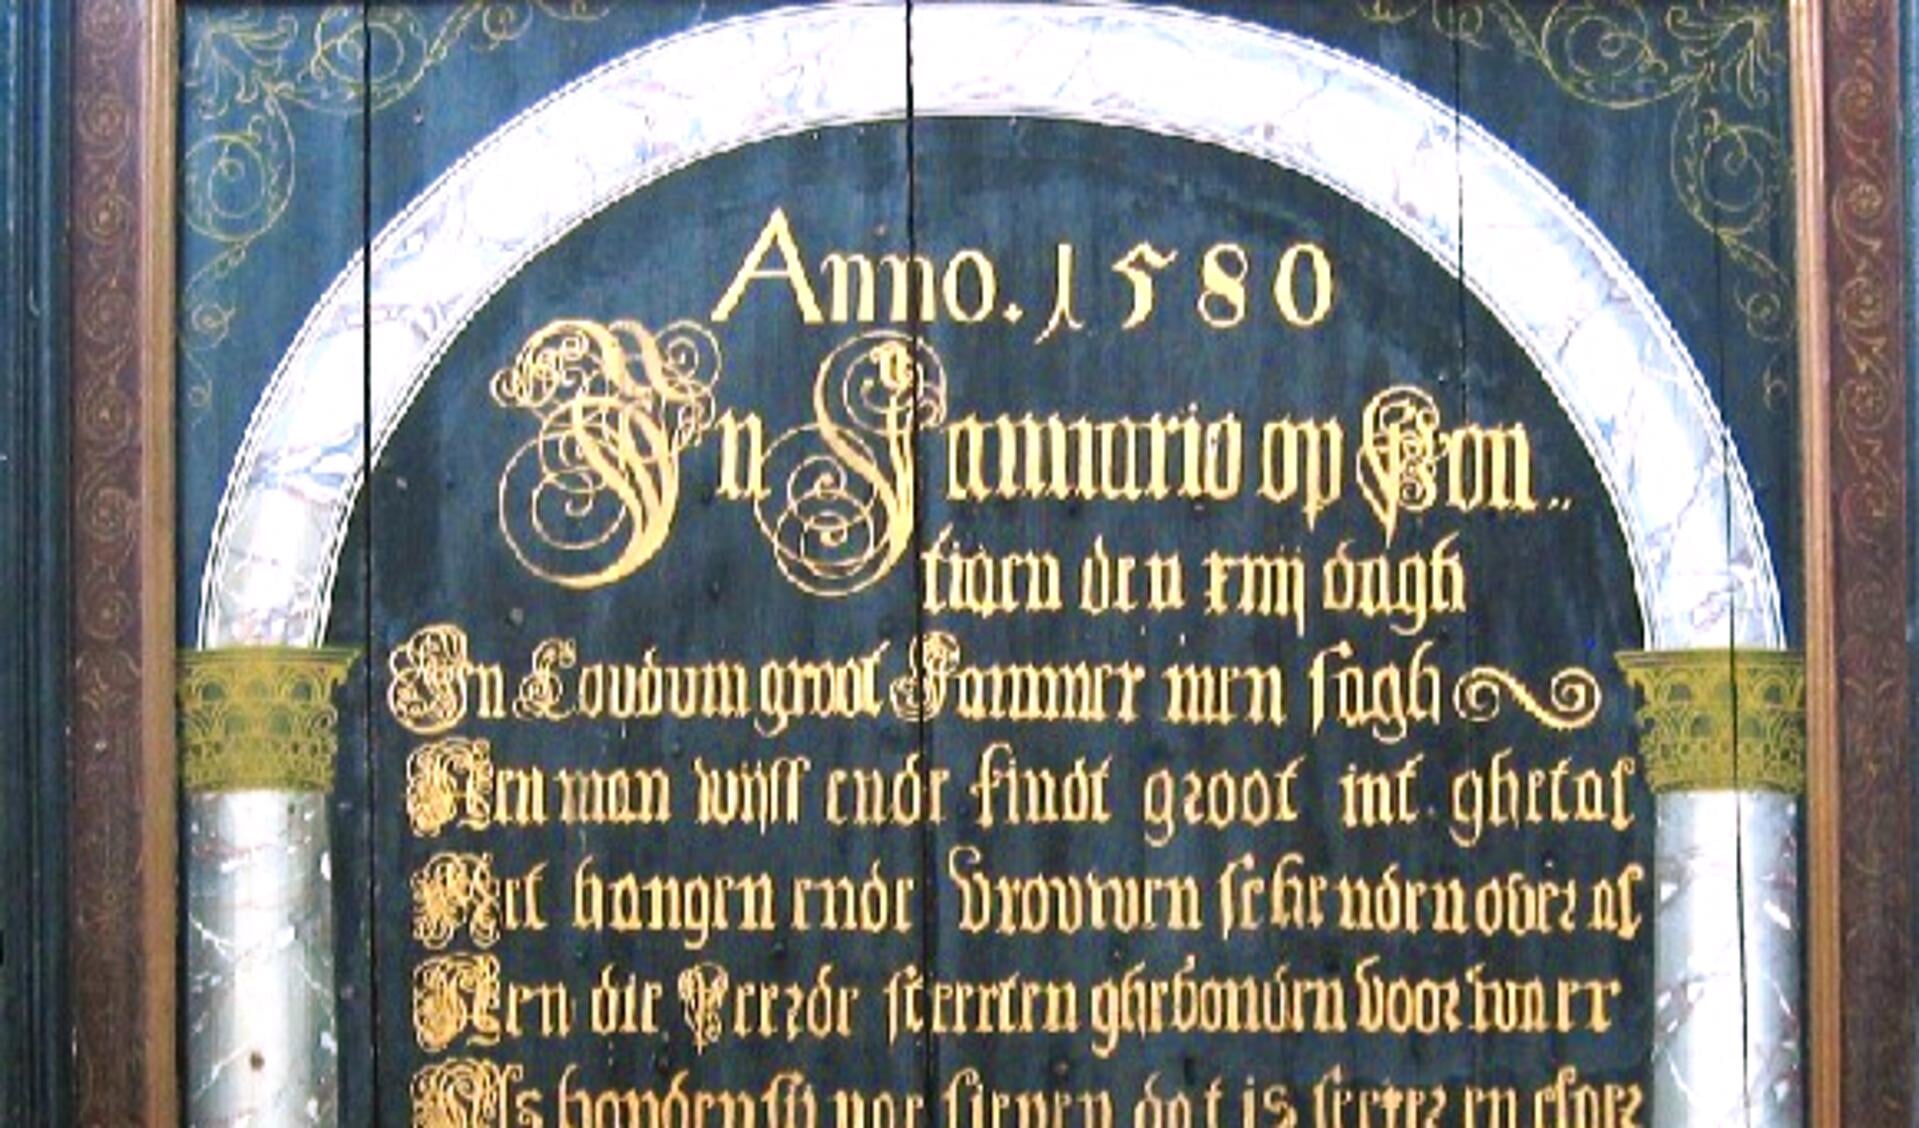 Anno. 1580
In Januario op Pon..
tiaen den xiiij dagh
In Coudum groot Jammer men sagh
Aen man wijff ende kindt groot int ghetal
Met hangen ende Vrouwen schenden over al
Aen die Peerde steerten ghebonden voorwaer
Als honden sij